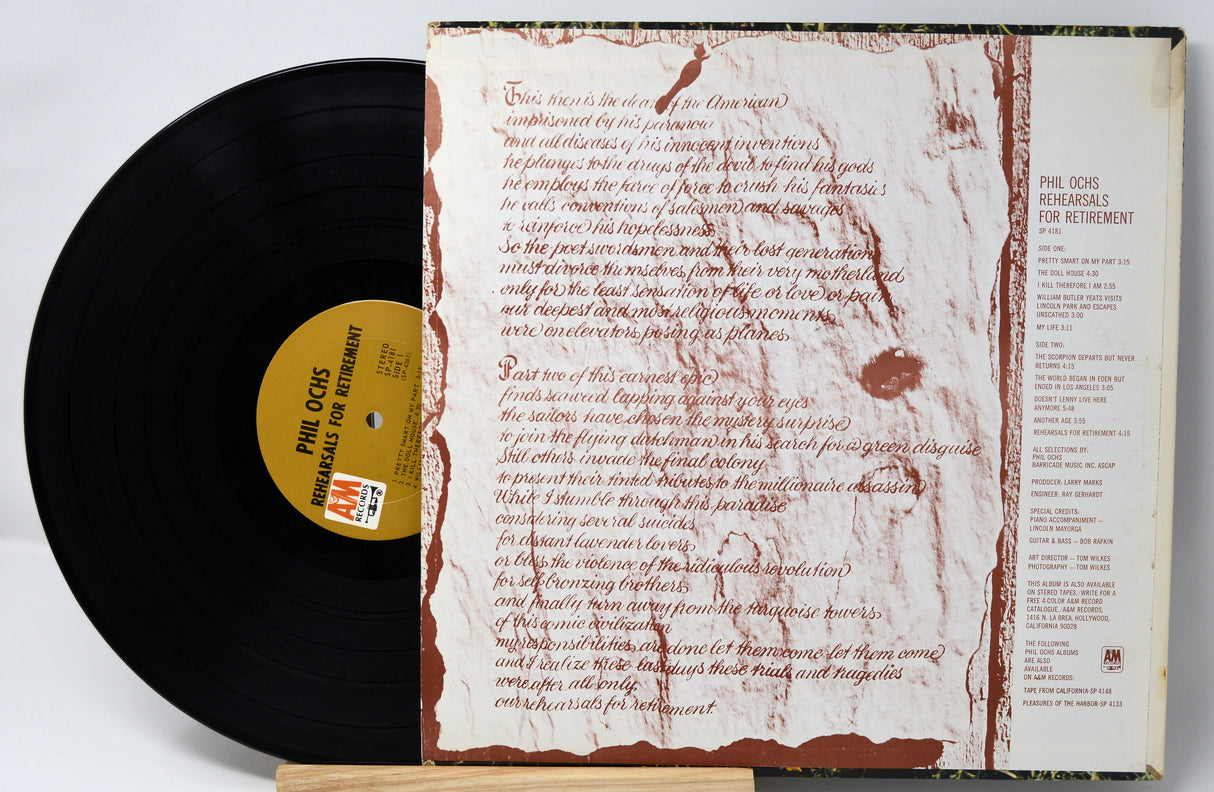 PHIL OCHS
REHEARSALS FOR RETIREMENT
STEREO
SP-4181
SIDE 1
(SP-4261)
1. PRETTY SMART ON MY PART 3:15
2. THE DOLL HOUSE 4:30
3. I KILL THEREF
4. WILL
A&M
RECORDS
This then is the dea of the American
imprisoned by his paranoia
and all diseases of his innocent inventions
he plunges to the drugs of the devil to find his gods
he employs the farce of force to crush his fantasies
he calls conventions of salesmen and savages
to reinforce his hopelessness
So the poet swordsmen and their lost generation
must divorce themselves from their very motherland
only for the least sensation of life or love or pain
our deepest and most religious moments
were on elevators posing as planes
Part two of this earnest epic
finds seaweed lapping against your eyes
the sailors have chosen the mystery surprise
to join the flying dutchman in his search for a green disguise
Still others invade the final colony
to present their tinted tributes to the millionaire assassin
While I stumble through this paradise
considering several suicides
for distant lavender lovers
or bless the violence of the ridiculous revolution
for self bronzing brothers
and finally turn away from the turquoise towers
of this comic civilization
my responsibilities are done let them come let them come
and I realize these last days these trials and tragedies
were after all only
our rehearsals for retirement.
PHIL OCHS
REHEARSALS
FOR RETIREMENT
SP 4181
SIDE ONE:
PRETTY SMART ON MY PART 3:15
THE DOLL HOUSE 4:30
I KILL THEREFORE I AM 2:55
WILLIAM BUTLER YEATS VISITS
LINCOLN PARK AND ESCAPES
UNSCATHED 3:00
MY LIFE 3:11
SIDE TWO:
THE SCORPION DEPARTS BUT NEVER
RETURNS 4:15
THE WORLD BEGAN IN EDEN BUT
ENDED IN LOS ANGELES 3:05
DOESN'T LENNY LIVE HERE
ANYMORE 5:48
ANOTHER AGE 3:55
REHEARSALS FOR RETIREMENT 4:15
ALL SELECTIONS BY:
PHIL OCHS
BARRICADE MUSIC INC. ASCAP
PRODUCER: LARRY MARKS
ENGINEER: RAY GERHARDT
SPECIAL CREDITS:
PIANO ACCOMPANIMENT —
LINCOLN MAYORGA
GUITAR & BASS — BOB RAFKIN
ART DIRECTOR — TOM WILKES
PHOTOGRAPHY — TOM WILKES
THIS ALBUM IS ALSO AVAILABLE
ON STEREO TAPES. WRITE FOR A
FREE 4-COLOR A&M RECORD
CATALOGUE. A&M RECORDS,
1416 N. LA BREA, HOLLYWOOD,
CALIFORNIA 90028
THE FOLLOWING
PHIL OCHS ALBUMS
ARE ALSO
AVAILABLE
ON A&M RECORDS:
AM
TAPE FROM CALIFORNIA-SP 4148
PLEASURES OF THE HARBOR-SP 4133